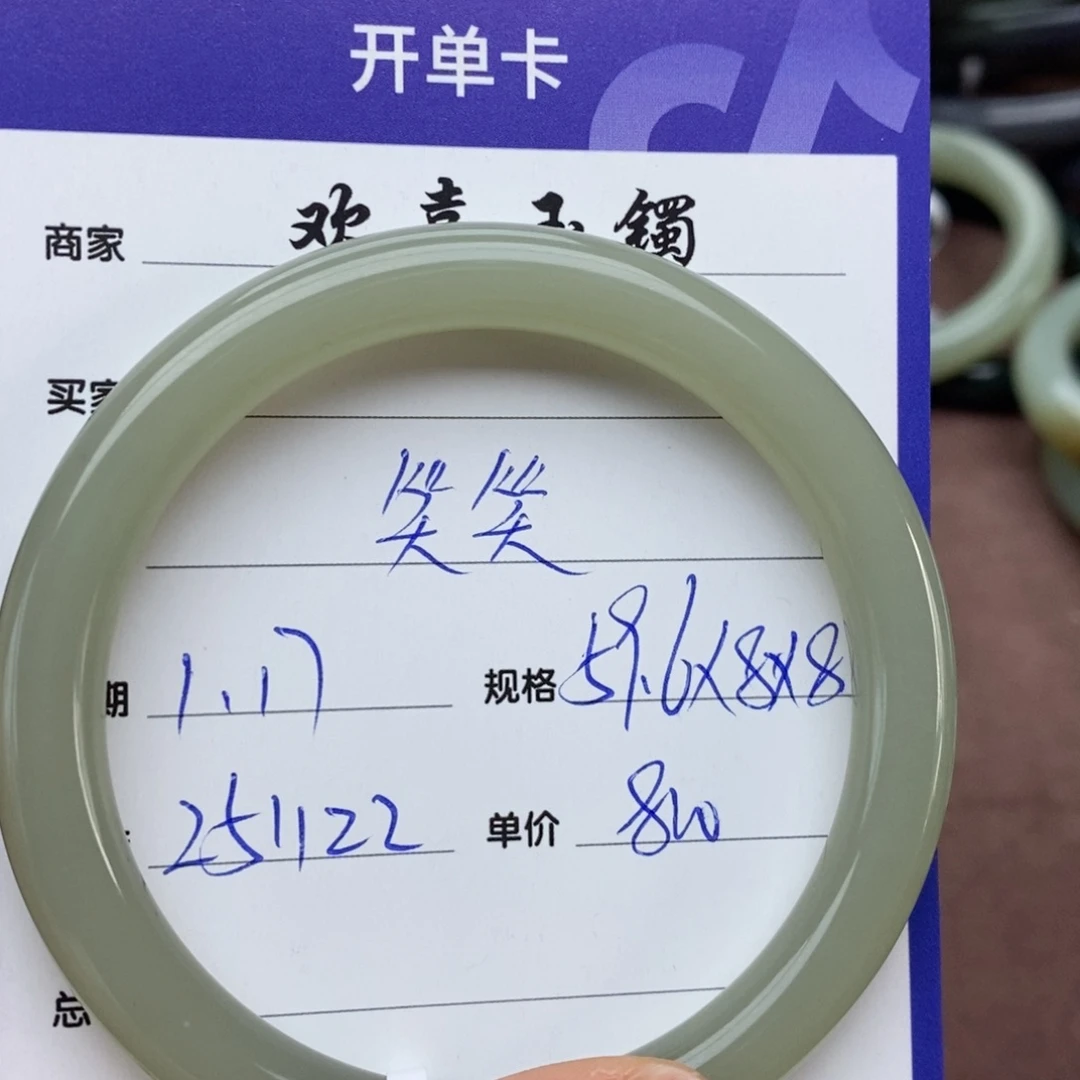 开单卡
商家 欢喜玉镯
买家
笑笑
期 1.17 规格 59.6x8x8
251122 单价 800
总